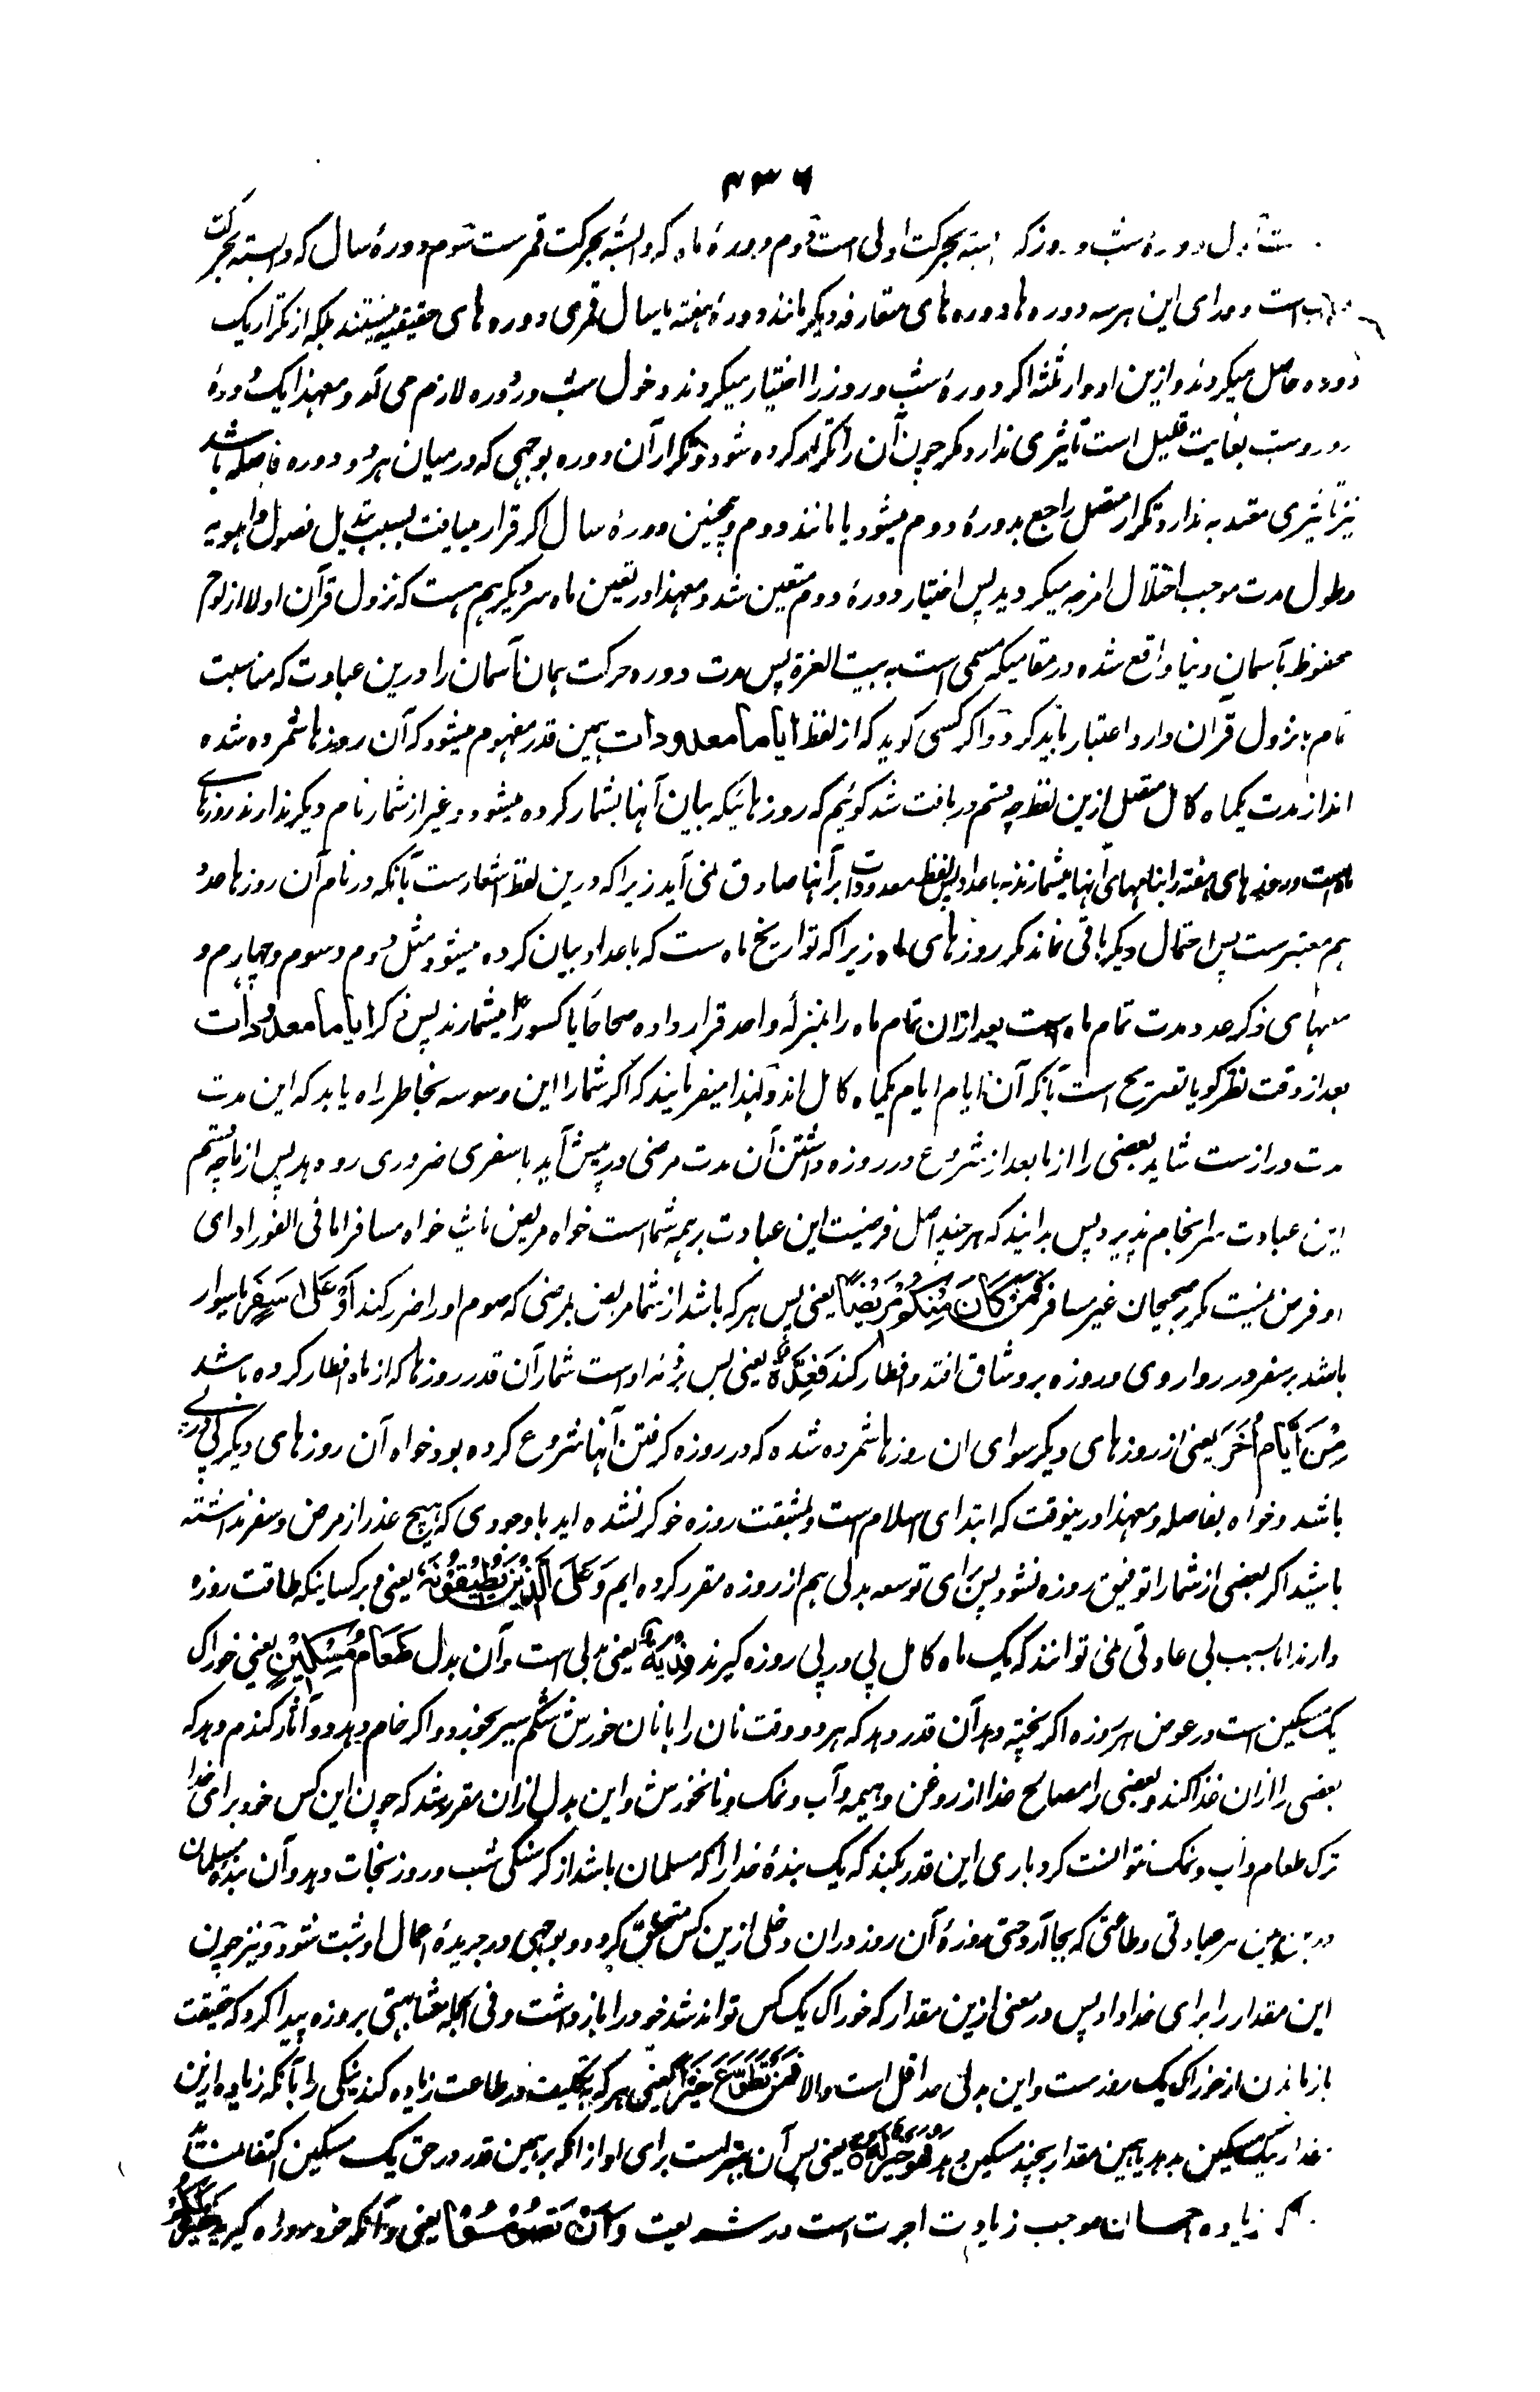 ۴۳۶
اول دورهٔ شب و روز که بحرکت اولی است دوم دورهٔ ماه که وابسته بحرکت قمرست سوم دورهٔ سال که وابسته بحرکت
است و ورای این هر سه دوره ها دوره های متعارفه دیگر مانند دورهٔ هفته یا سال قمری دوره های حقیقیه نیستند بلکه از تکرار یک
دوره حاصل میگردند و ازین ادوار ثلثه اگر دورهٔ شب و روز را اختیار میکردند دخول شب در دوره لازم می آمد و معهذا یک دورهٔ
روز و شب بغایت قلیل است تاثیری ندارد مگر چون آن را تکرار کرده شود و تکرار آن دوره بوجهی که در میان هر دو دوره فاصله باشد
نیز تاثیری معتد به ندارد و تکرار متصل راجع بدورهٔ دوم میشود یا مانند دوم و همچنین دورهٔ سال اگر قرار مییافت بسبب تبدیل فصول و اهویه
و طول مدت موجب اختلال امزجه میگردید پس اختیار دورهٔ دوم متعین شد و معهذا در تعین ماه سر دیگر هم هست که نزول قرآن اولا از لوح
محفوظ بآسمان دنیا واقع شده در مقامیکه مسمی است به بیت العزة پس مدت دوره حرکت همان آسمان را درین عبادت که مناسبت
تام با نزول قرآن دارد اعتبار باید کرد و اگر کسی گوید که از لفظ ایاما معدودات همین قدر مفهوم میشود که آن روزها شمرده شده
اند از مدت یکماه کامل متصل ازین لفظ چه قسم دریافت شد گوئیم که روزهائیکه بیان آنها بشمار کرده میشود و غیر از شمار نام دیگر ندارند روزهای
ماه است و روز های هفته را بنامهای آنها میشمارند نه باعداد پس لفظ معدودات بر آنها صادق نمی آید زیرا که درین لفظ اشعارست بآنکه در نام آن روزها عدد
هم معتبرست پس احتمال دیگر باقی نماند مگر روزهای ماه زیرا که تواریخ ماه ست که باعداد بیان کرده میشود مثل دوم و سوم و چهارم و
منتهای ذکر عدد مدت تمام ماه است بعد ازان تمام ماه را بمنزله واحد قرار داده صحاحا یا کسورا میشمارند پس ذکر ایاما معدودات
بعد از دقت نظر گویا تصریح است بآنکه آن ایام ایام یکماه کامل اند و لهذا میفرمایند که اگر شما را این وسوسه بخاطر راه یابد که این مدت
مدت درازست شاید بعضی را از ما بعد از شروع در روزه داشتن آن مدت مرضی در پیش آید یا سفری ضروری رو دهد پس از ما چه قسم
این عبادت سرانجام پذیرد پس بدانید که هر چند اصل فرضیت این عبادت بر همه شما است خواه مریض باشید خواه مسافر اما فی الفور ادای
او فرض نیست مگر بر صحیحان غیر مسافر فَمَنْ كَانَ مِنْكُمْ مَرِيضًا یعنی پس هر که باشد از شما مریض بمرضی که صوم او را ضرر کند اَوْ عَلَى سَفَرٍ یا سوار
باشد بر سفر و در روا روی و روزه بر و شاق افتد و افطار کند فَعِدَّةٌ یعنی پس بر ذمه او است شمار آن قدر روزها که از ماه افطار کرده باشد
مِنْ اَيَّامٍ اُخَرَ یعنی از روزهای دیگر سوای آن روزها شمرده شده که در روزه گرفتن آنها شروع کرده بود خواه آن روزهای دیگر پی در پی
باشد و خواه بفاصله و معهذا درینوقت که ابتدای اسلام است و بمشقت روزه خوگر نشده اید با وجودی که هیچ عذر از مرض و سفر نداشته
باشید اگر بعضی از شما را توفیق روزه نشود پس برای توسعه بدلی هم از روزه مقرر کرده ایم وَعَلَى الَّذِينَ يُطِيقُونَهُ یعنی و بر کسانیکه طاقت روزه
دارند اما بسبب بی عادتی نمی توانند که یک ماه کامل پی در پی روزه گیرند فِدْيَةٌ یعنی بدلی است و آن بدل طَعَامُ مِسْكِينٍ یعنی خوراک
یک مسکین است در عوض هر روزه اگر پخته دهد آن قدر دهد که هر دو وقت نان را با نان خورش شکم سیر بخورد و اگر خام دهد دو آثار گندم دهد که
بعضی را ازان غذا کند و بعضی را مصالح غذا از روغن و هیمه و آب و نمک و نانخورش و این بدل ازان مقرر شد که چون این کس خود برای خدا
ترک طعام و آب و نمک نتوانست کرد باری این قدر بکند که یک بندهٔ خدا را که مسلمان باشد از گرسنگی شب و روز نجات دهد و آن بندهٔ مسلمان
هر عبادتی و طاعتی که بجا آرد حتی روزهٔ آن روز دران دخلی ازین کس متحقق گردد و بوجهی در جریدهٔ اعمال او ثبت شود و نیز چون
این مقدار را برای خدا داد پس در معنی ازین مقدار که خوراک یک کس تواند شد خود را باز داشت و فی الجمله مشابهتی بروزه پیدا کرد که حقیقت
باز ماندن از خوراک یک روزست و این بدلی حد اقل است والا فَمَنْ تَطَوَّعَ خَيْرًا یعنی هر که بتکلیف در طاعت زیاده کند نیکی را بآنکه زیاده ازین
غدا بیک مسکین بدهد یا همین مقدار بچند مسکین بدهد فَهُوَ خَيْرٌ لَهُ یعنی پس آن بهتر است برای او از آنکه بر همین قدر در حق یک مسکین اکتفا
که زیاده احسان موجب زیادت اجرت است در شریعت وَاَنْ تَصُومُوا یعنی و آنکه خود روزه گیرید خَيْرٌ